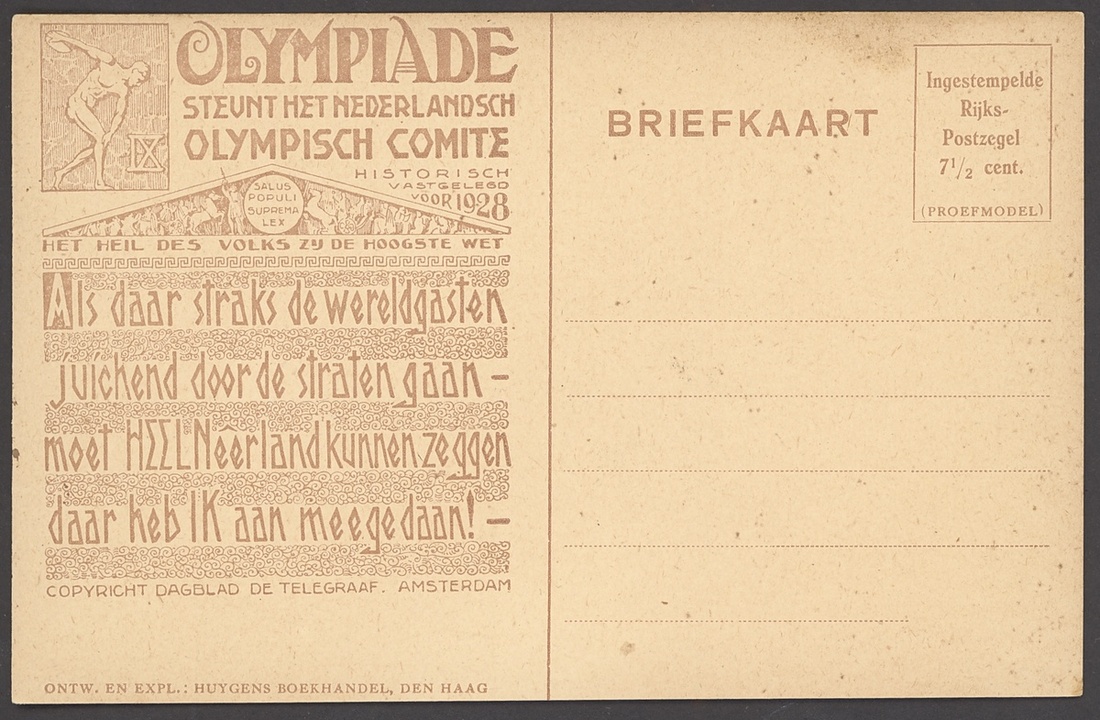 OLYMPIADE
STEUNT HET NEDERLANDSCH
OLYMPISCH COMITE
HISTORISCH
VASTGELEGD
VOOR 1928
IX
SALUS
POPULI
SUPREMA
LEX
HET HEIL DES VOLKS ZIJ DE HOOGSTE WET
Als daar straks de wereldgasten
juichend door de straten gaan –
moet HEEL Neêrland kunnen zeggen
daar heb IK aan meegedaan! –
COPYRIGHT DAGBLAD DE TELEGRAAF. AMSTERDAM
ONTW. EN EXPL.: HUYGENS BOEKHANDEL, DEN HAAG
BRIEFKAART
Ingestempelde
Rijks-
Postzegel
7 1/2 cent.
(PROEFMODEL)